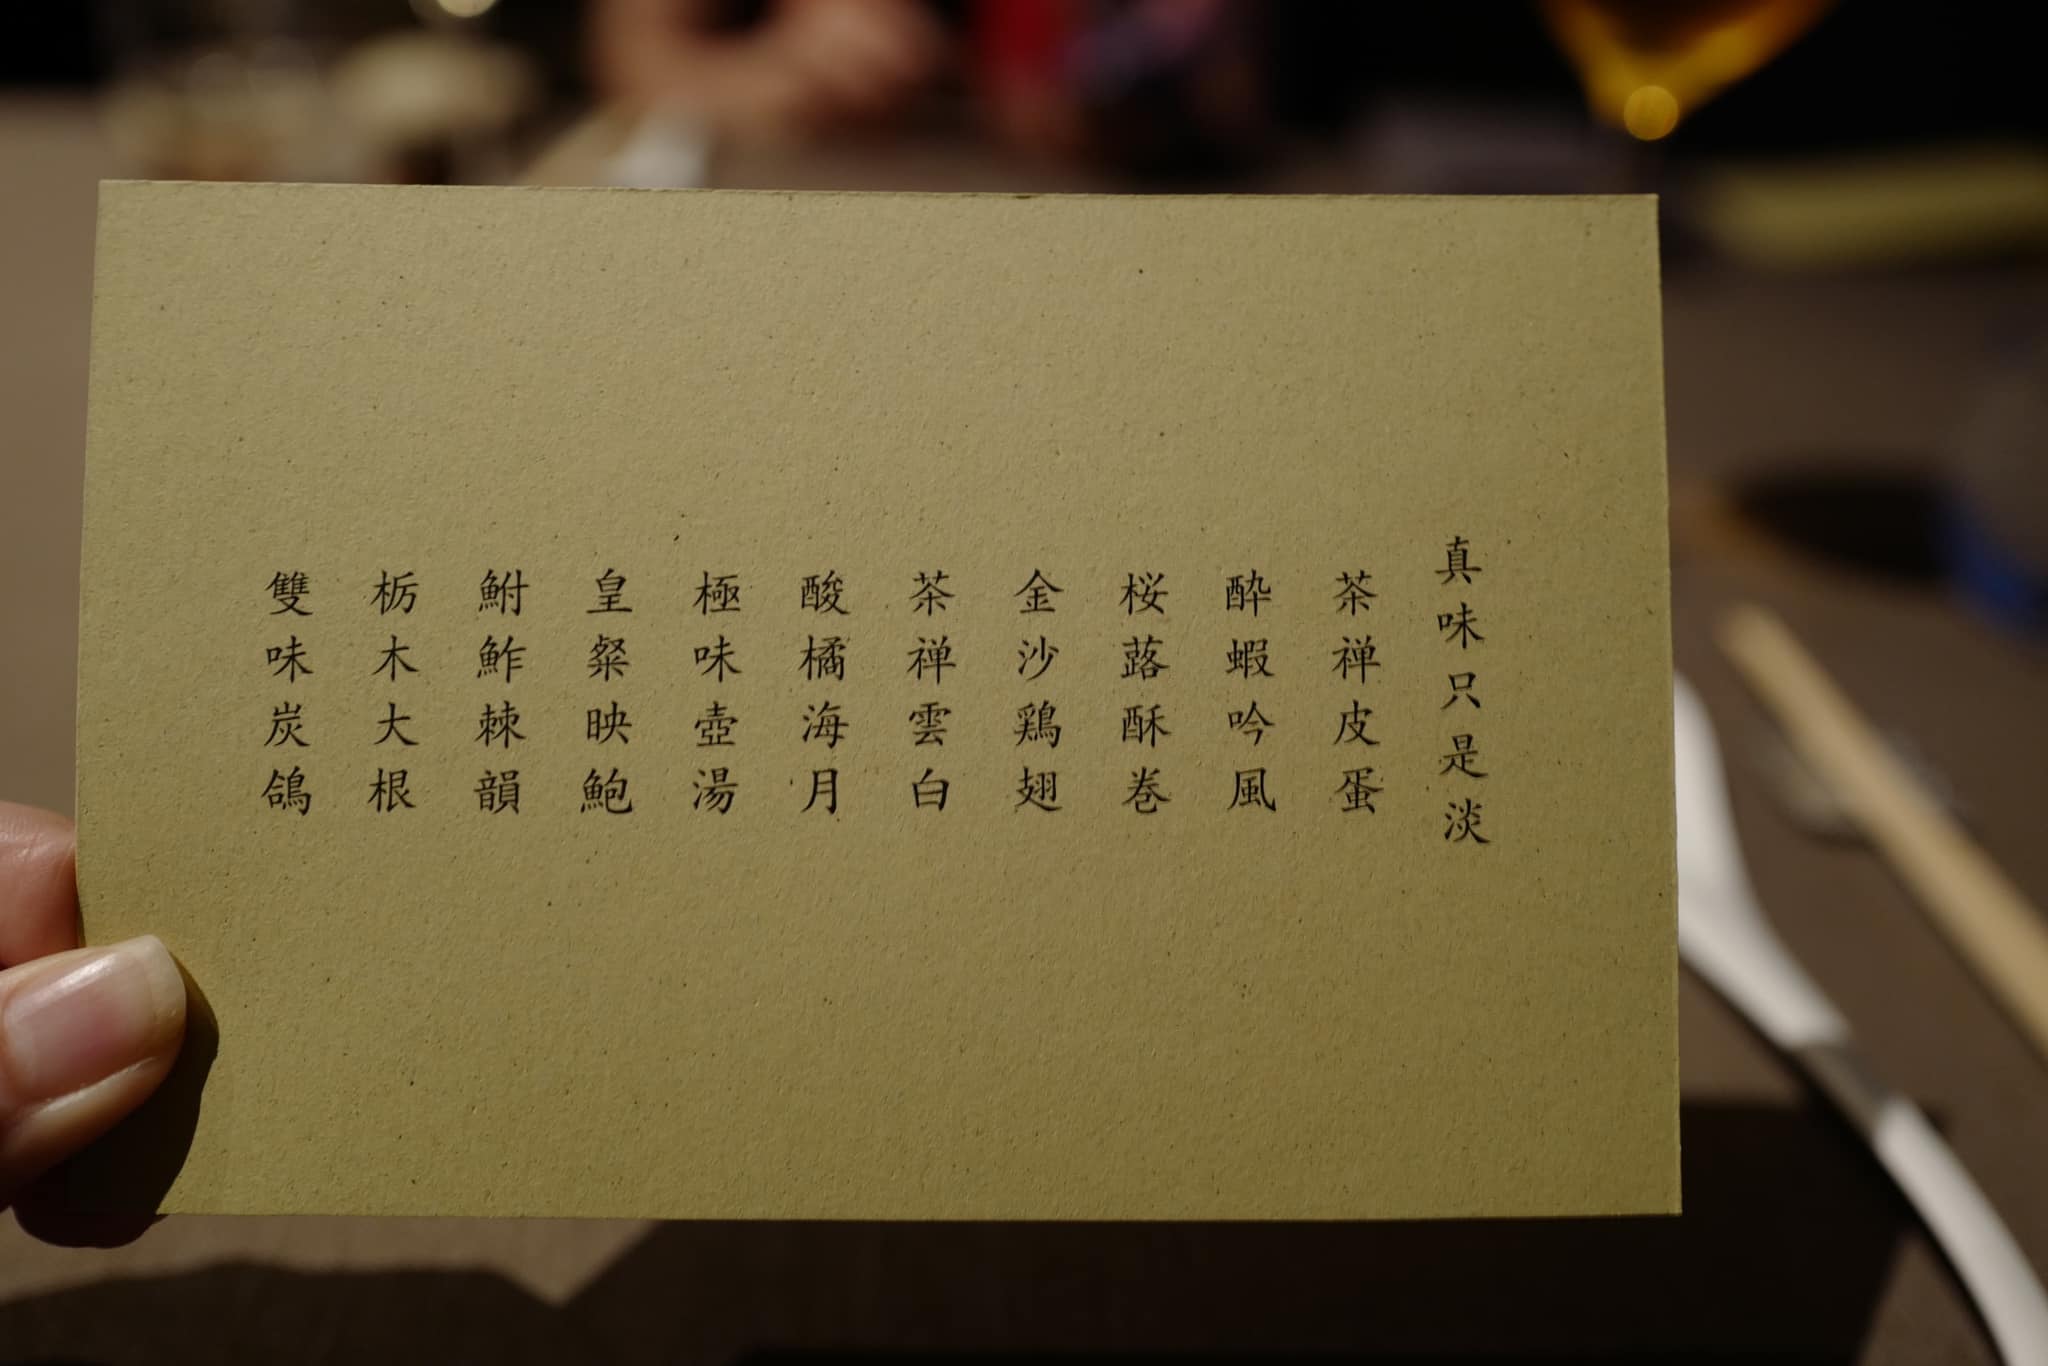 真味只是淡
茶禅皮蛋
酔蝦吟風
桜蕗酥巻
金沙鶏翅
茶禅雲白
酸橘海月
極味壺湯
皇粲映鮑
鮒鮓棘韻
栃木大根
雙味炭鴿